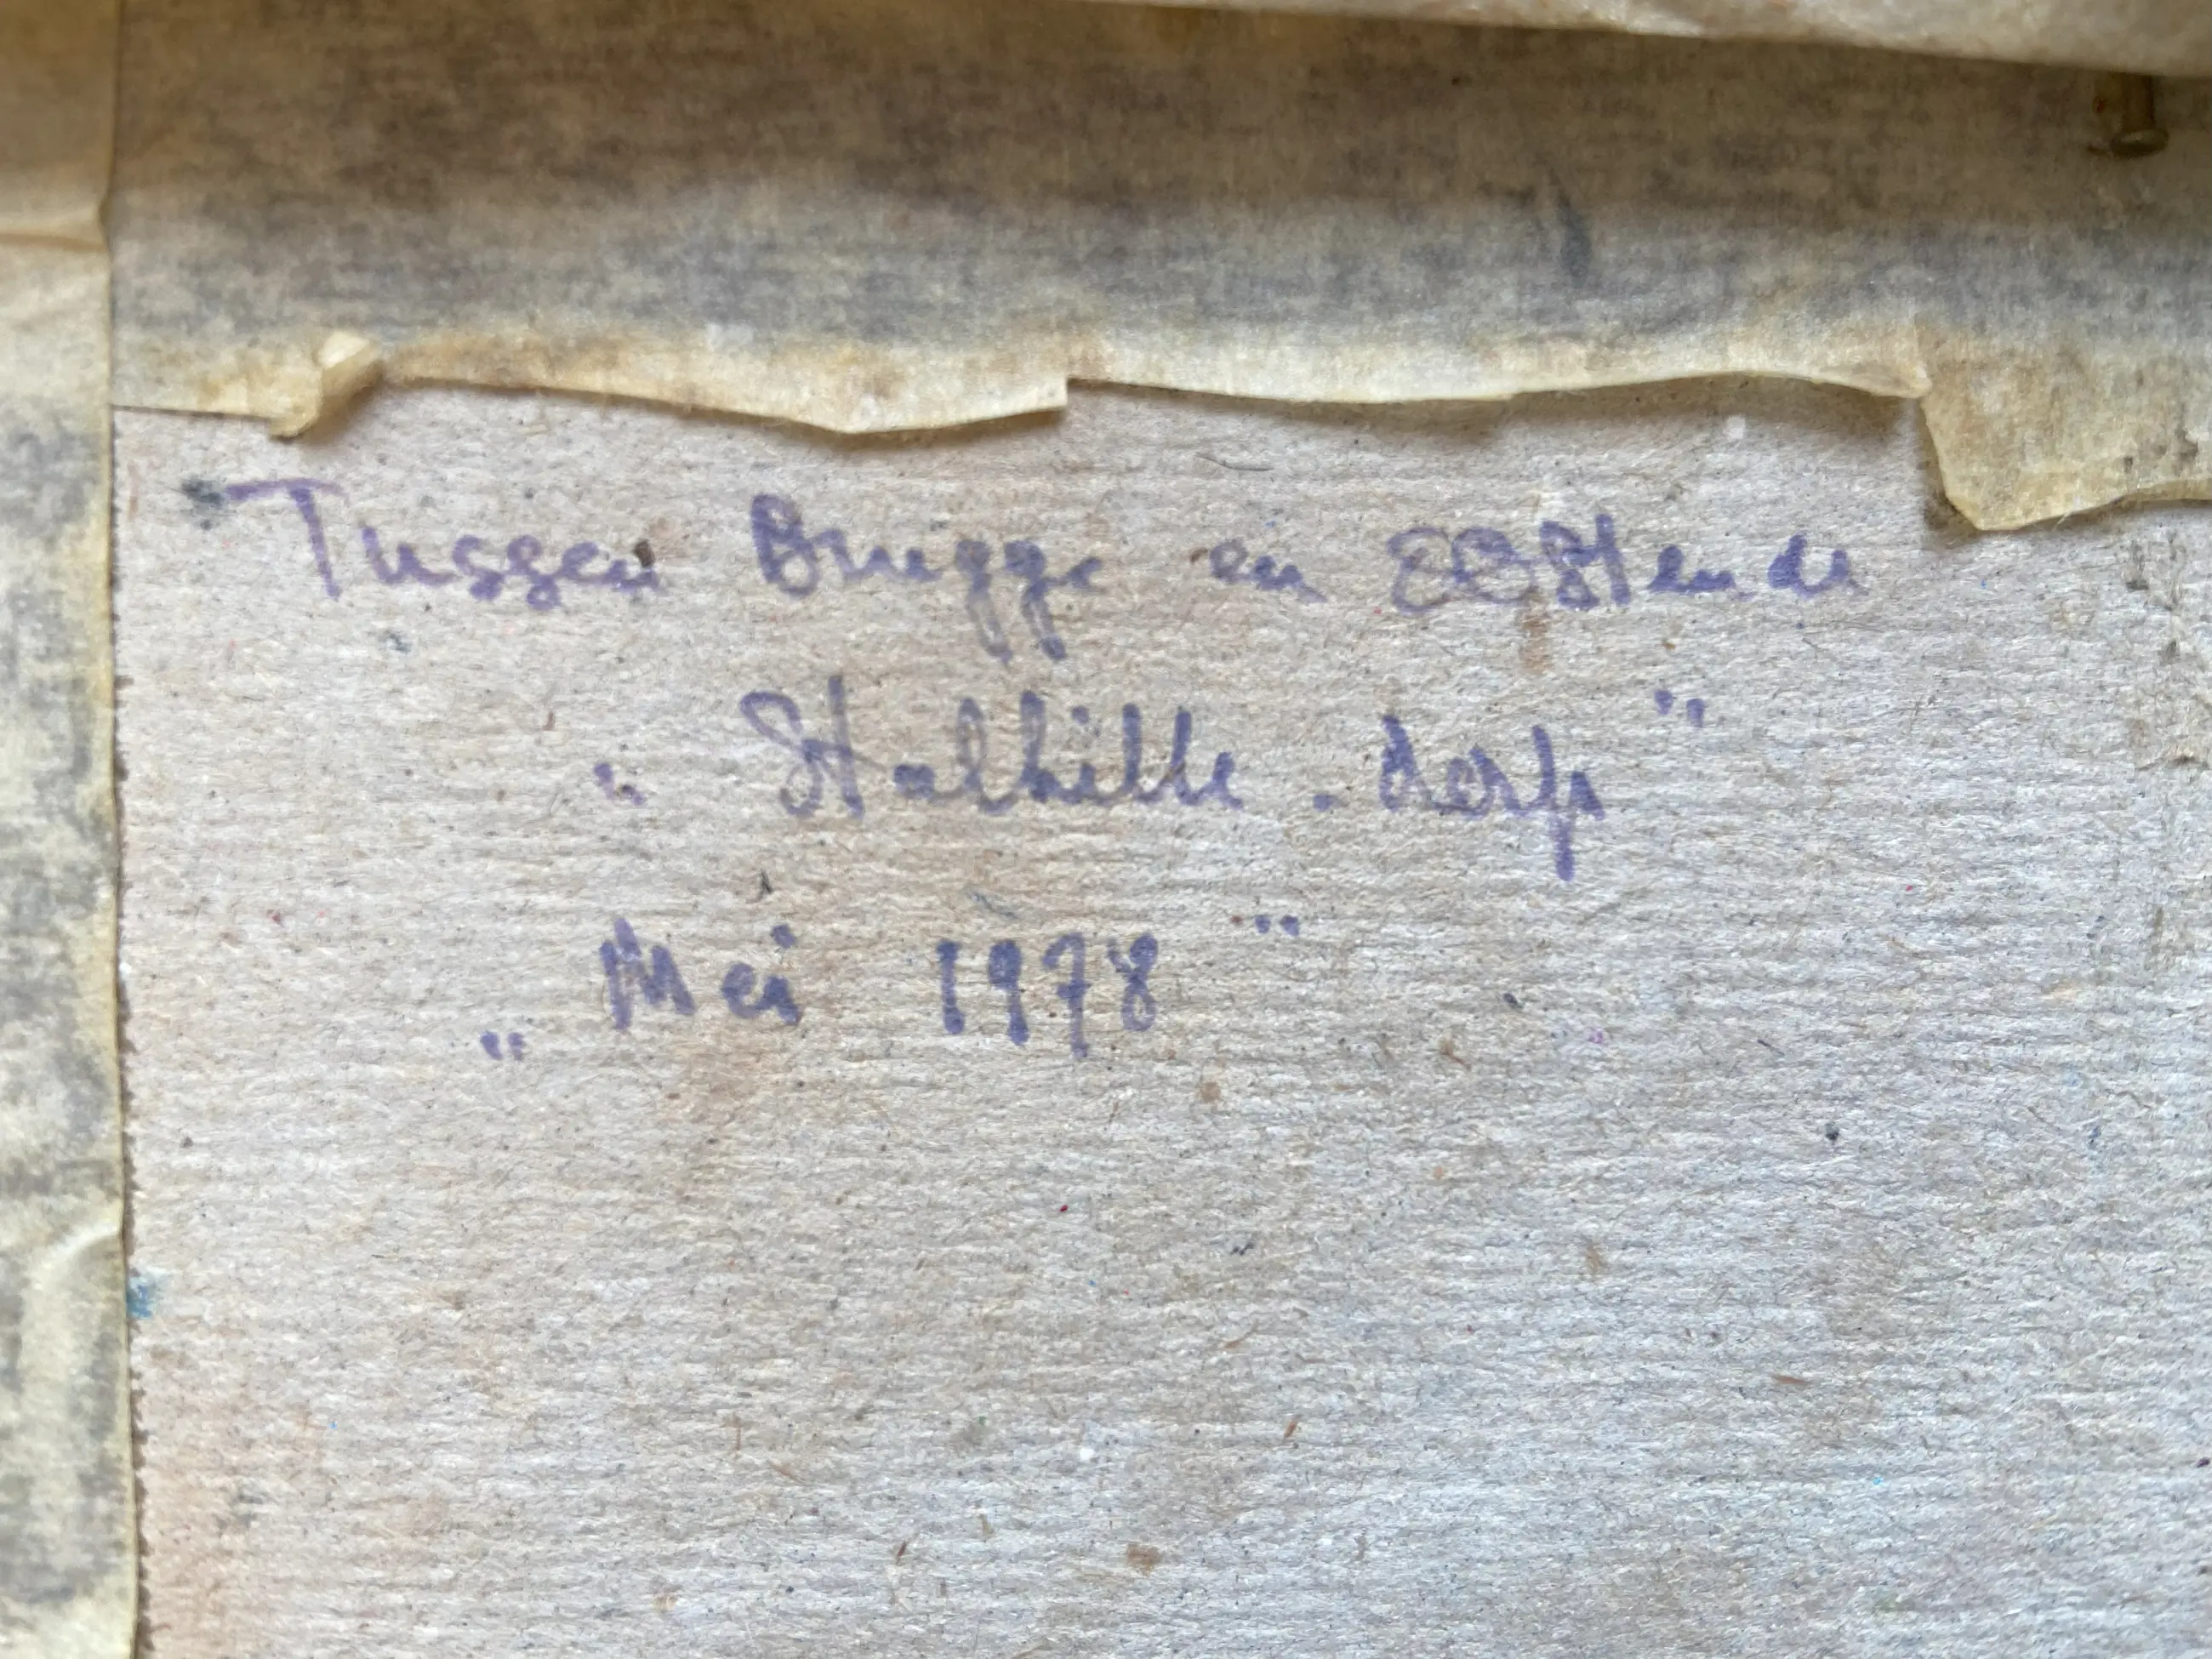 Tussen Brugge en OOstende
" Stalhille - dorp "
„ Mei 1978 "